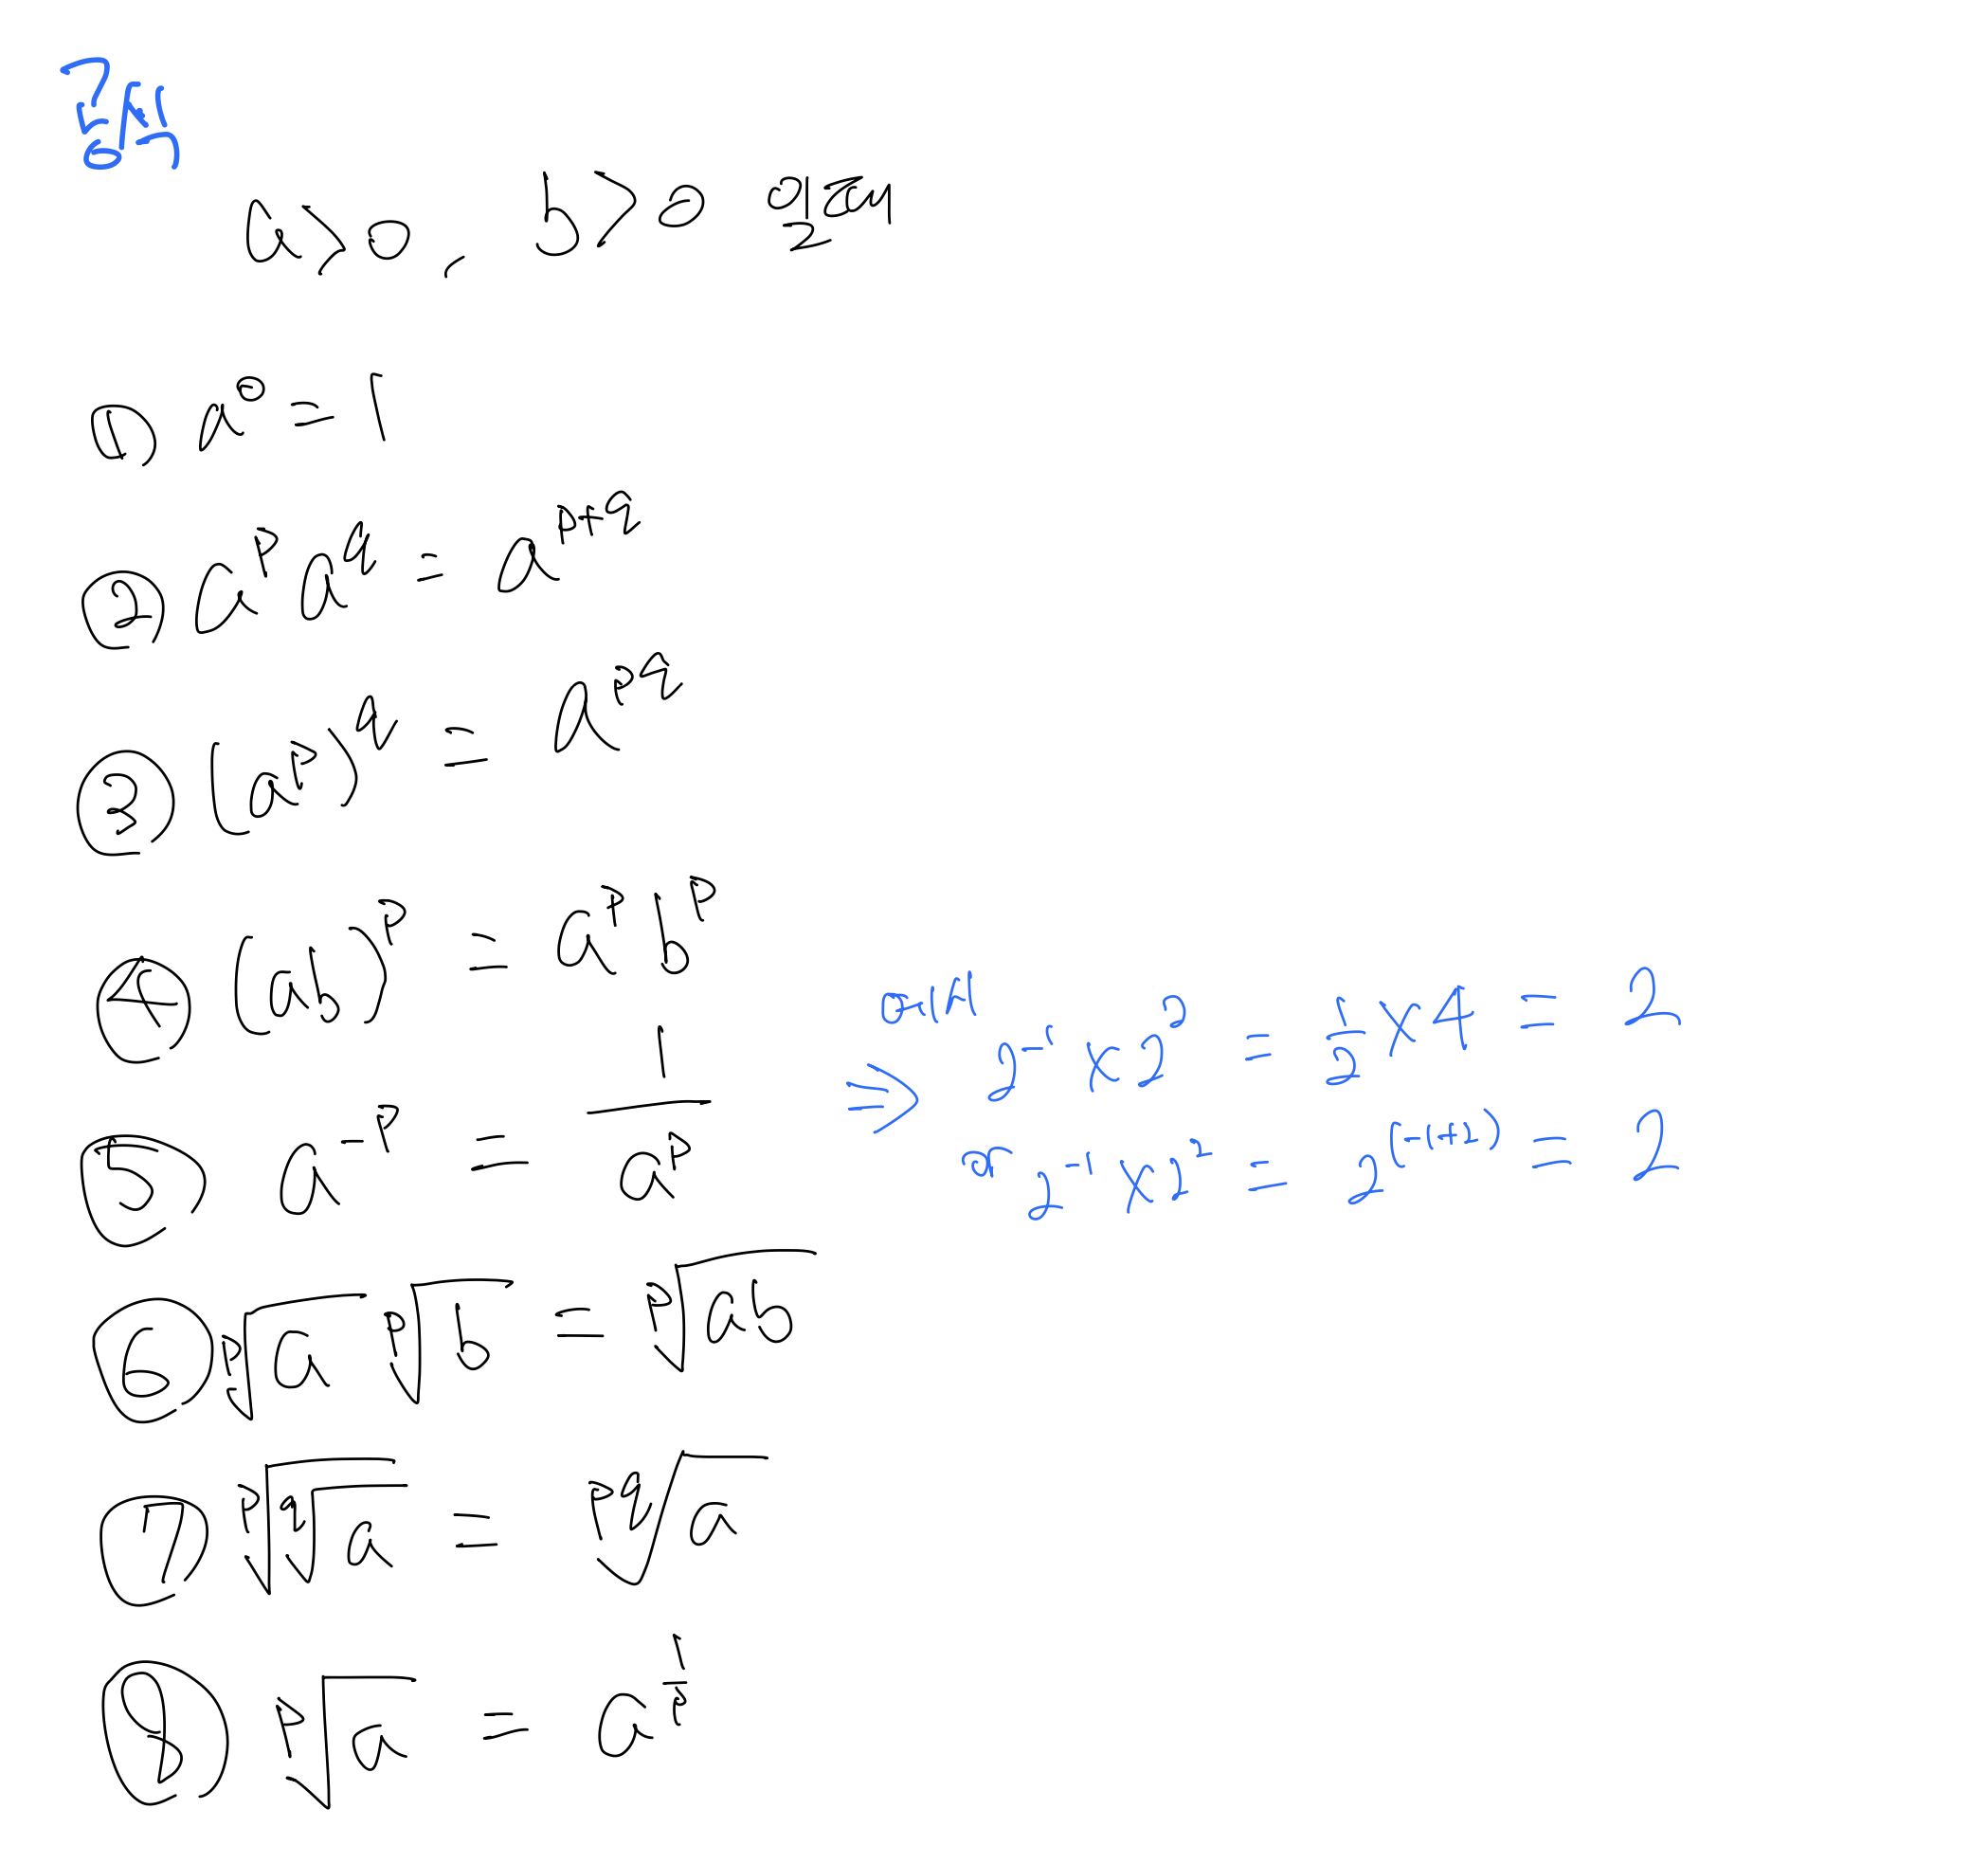 공식
a>0, b>0 일 때
① a⁰ = 1
② aᵖ a^q = a^(p+q)
③ (aᵖ)^q = a^(pq)
④ (ab)ᵖ = aᵖ bᵖ
⑤ a⁻ᵖ = 1/aᵖ
⇒ 예시 2⁻¹ × 2² = 1/2 × 4 = 2
2⁻¹ × 2² = 2^(-1+2) = 2
⑥ ᵖ√a ᵖ√b = ᵖ√ab
⑦ ᵖ√(^q√a) = ^(pq)√a
⑧ ᵖ√a = a^(1/p)